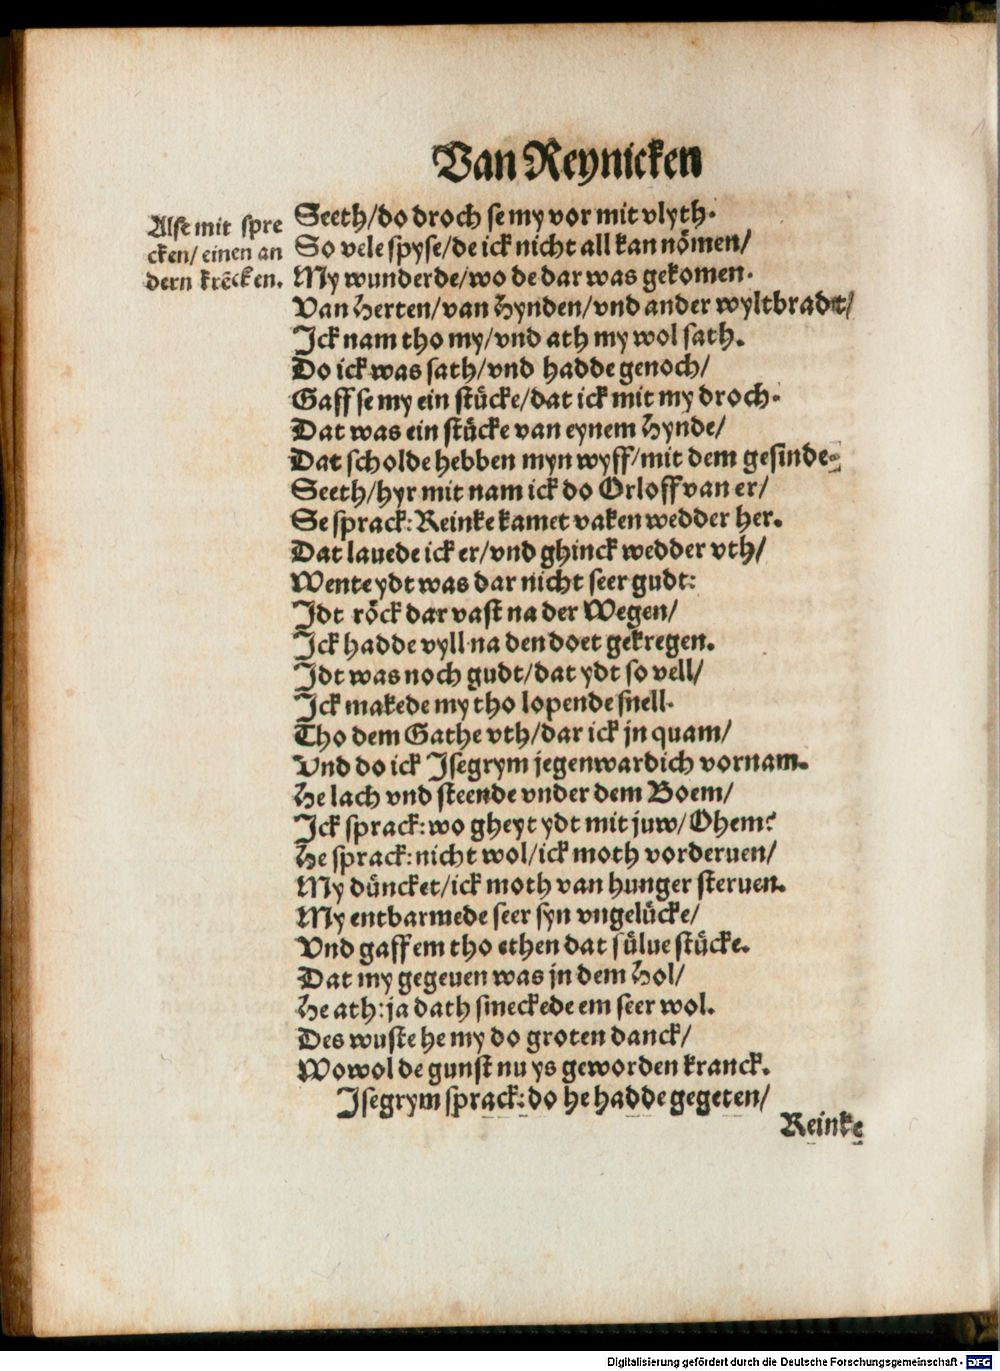 Van Reynicken
Alse mit spre
cken/ einen an
dern krēcken.
Seeth/do droch se my vor mit vlyth.
So vele spyse/de ick nicht all kan nömen/
My wunderde/wo de dar was gekomen.
Van Herten/van Hynden/vnd ander wyltbradt/
Ick nam tho my/vnd ath my wol sath.
Do ick was sath/vnd hadde genoch/
Gaff se my ein stücke/dat ick mit my droch.
Dat was ein stücke van eynem Hynde/
Dat scholde hebben myn wyff/mit dem gesinde.
Seeth/hyr mit nam ick do Orloff van er/
Se sprack: Reinke kamet vaken wedder her.
Dat lauede ick er/vnd ghinck wedder vth/
Wente ydt was dar nicht seer gudt:
Idt röck dar vast na der Wegen/
Ick hadde vyll na den doet gekregen.
Idt was noch gudt/dat ydt so vell/
Ick makede my tho lopende snell.
Tho dem Gathe vth/dar ick jn quam/
Vnd do ick Isegrym jegenwardich vornam.
He lach vnd steende vnder dem Boem/
Ick sprack: wo gheyt ydt mit juw/Ohem?
He sprack: nicht wol/ick moth vorderuen/
My düncket/ick moth van hunger steruen.
My entbarmede seer syn vngelücke/
Vnd gaff em tho ethen dat sülue stücke.
Dat my gegeuen was jn dem Hol/
He ath: ja dath smeckede em seer wol.
Des wuste he my do groten danck/
Wowol de gunst nu ys geworden kranck.
Isegrym sprack: do he hadde gegeten/
Reinke
Digitalisierung gefördert durch die Deutsche Forschungsgemeinschaft - DFG